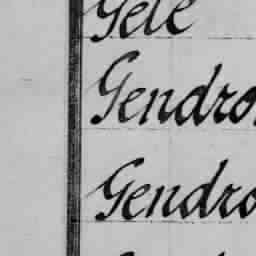 Gele
Gendro
Gendro